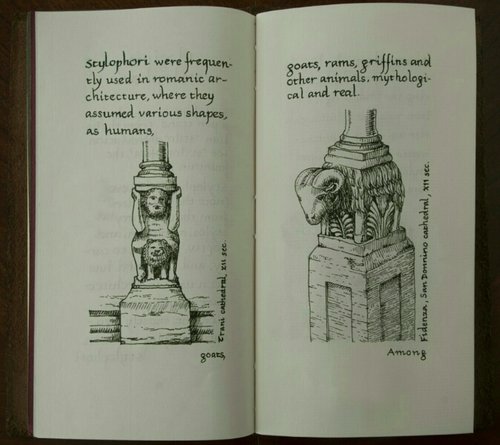 Stylophori were frequen-
tly used in romanic ar-
chitecture, where they
assumed various shapes,
as humans,
Trani cathedral, XII sec.
goats,
goats, rams, griffins and
other animals, mythologi-
cal and real.
Fidenza, San Donnino cathedral, XII sec.
Among